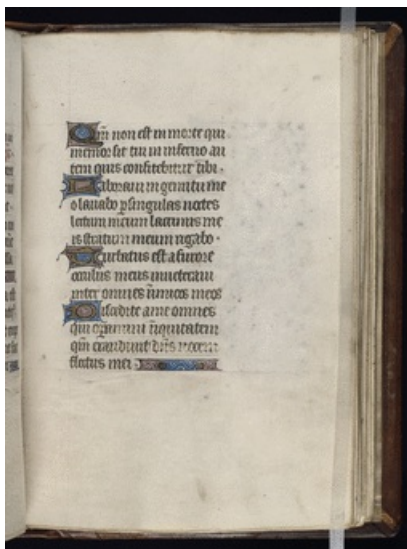 Qm̄ non est in morte qui
memor sit tui in inferno au
tem quis confitebitur tibi ·
Laboraui in gemitu me
o lauabo ꝑ singulas noctes
lectum meum lacrimis me
is stratum meum rigabo ·
Turbatus est a furore
oculus meus inueteraui
inter omnes inimicos meos
Discedite a me omnes
qui operamini iniquitatem
qm̄ exaudiuit dn̄s uocem
fletus mei ·